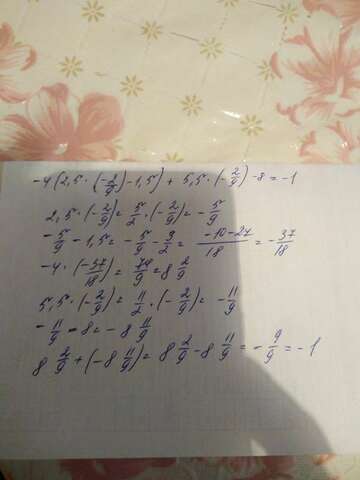 -4(2,5·(-2/9)-1,5)+5,5·(-2/9)-8=-1
2,5·(-2/9)=5/2·(-2/9)=-5/9
-5/9-1,5=-5/9-3/2=(-10-27)/18=-37/18
-4·(-37/18)=74/9=8 2/9
5,5·(-2/9)=11/2·(-2/9)=-11/9
-11/9-8=-8 11/9
8 2/9+(-8 11/9)=8 2/9-8 11/9=-9/9=-1